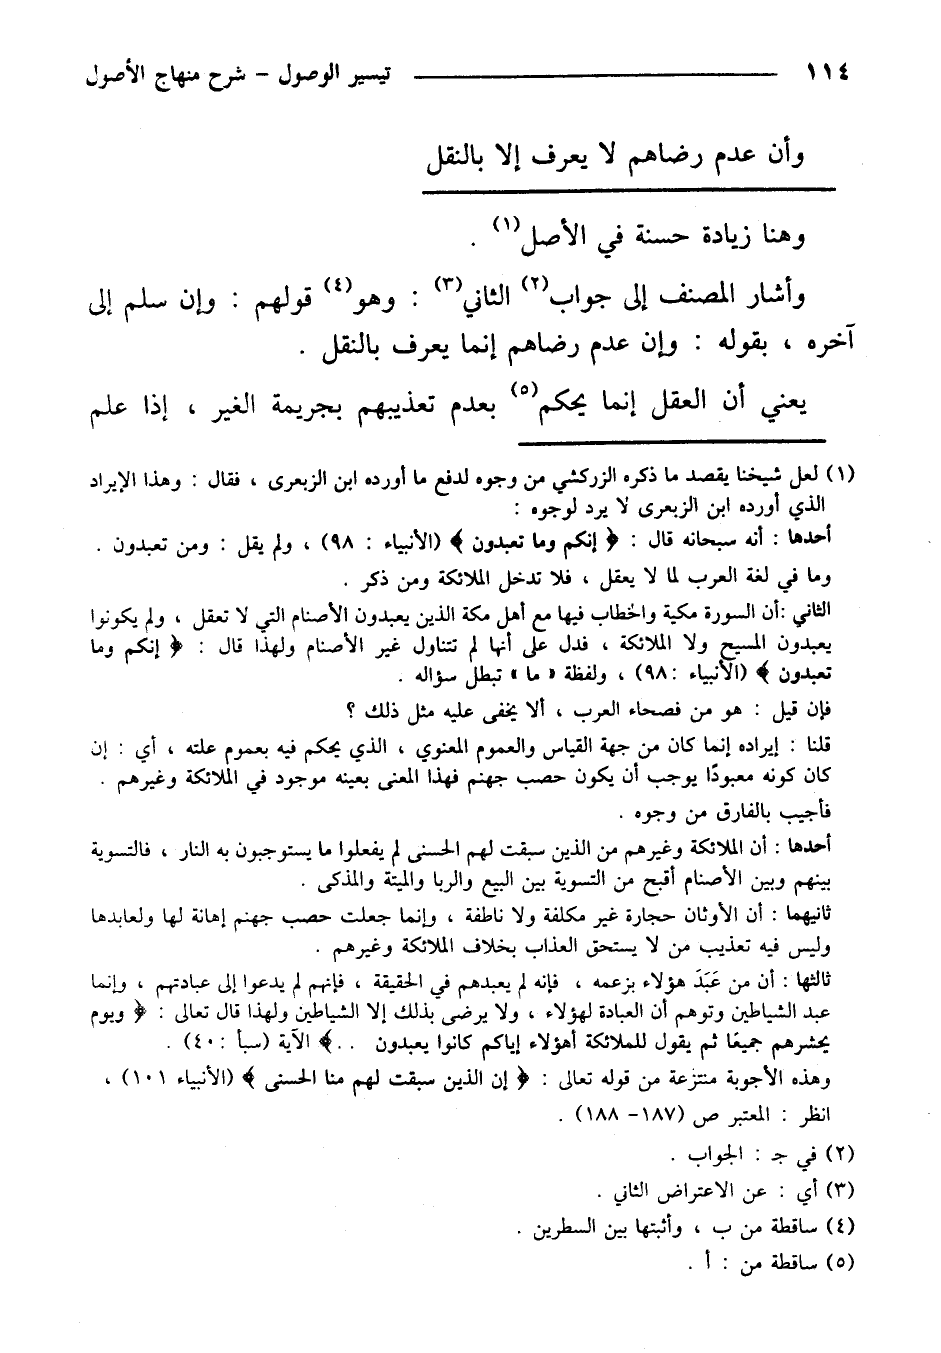 ١١٤ تيسير الوصول – شرح منهاج الأصول
وأن عدم رضاهم لا يعرف إلا بالنقل
وهنا زيادة حسنة في الأصل(١) .
وأشار المصنف إلى جواب(٢) الثاني(٣) : وهو(٤) قولهم : وإن سلم إلى
آخره ، بقوله : وإن عدم رضاهم إنما يعرف بالنقل .
يعني أن العقل إنما يحكم(٥) بعدم تعذيبهم بجريمة الغير ، إذا علم
(١) لعل شيخنا يقصد ما ذكره الزركشي من وجوه لدفع ما أورده ابن الزبعرى ، فقال : وهذا الإيراد
الذي أورده ابن الزبعرى لا يرد لوجوه :
أحدها : أنه سبحانه قال : ﴿ إنكم وما تعبدون ﴾ (الأنبياء : ٩٨) ، ولم يقل : ومن تعبدون .
وما في لغة العرب لما لا يعقل ، فلا تدخل الملائكة ومن ذكر .
الثاني :أن السورة مكية والخطاب فيها مع أهل مكة الذين يعبدون الأصنام التي لا تعقل ، ولم يكونوا
يعبدون المسيح ولا الملائكة ، فدل على أنها لم تتناول غير الأصنام ولهذا قال : ﴿ إنكم وما
تعبدون ﴾ (الأنبياء :٩٨) ، ولفظة « ما » تبطل سؤاله .
فإن قيل : هو من فصحاء العرب ، ألا يخفى عليه مثل ذلك ؟
قلنا : إيراده إنما كان من جهة القياس والعموم المعنوي ، الذي يحكم فيه بعموم علته ، أي : إن
كان كونه معبودًا يوجب أن يكون حصب جهنم فهذا المعنى بعينه موجود في الملائكة وغيرهم .
فأجيب بالفارق من وجوه .
أحدها : أن الملائكة وغيرهم من الذين سبقت لهم الحسنى لم يفعلوا ما يستوجبون به النار ، فالتسوية
بينهم وبين الأصنام أقبح من التسوية بين البيع والربا والميتة والمذكى .
ثانيهما : أن الأوثان حجارة غير مكلفة ولا ناطفة ، وإنما جعلت حصب جهنم إهانة لها ولعابدها
وليس فيه تعذيب من لا يستحق العذاب بخلاف الملائكة وغيرهم .
ثالثها : أن من عَبَدَ هؤلاء بزعمه ، فإنه لم يعبدهم في الحقيقة ، فإنهم لم يدعوا إلى عبادتهم ، وإنما
عبد الشياطين وتوهم أن العبادة لهؤلاء ، ولا يرضى بذلك إلا الشياطين ولهذا قال تعالى : ﴿ ويوم
يحشرهم جميعًا ثم يقول للملائكة أهؤلاء إياكم كانوا يعبدون ..﴾ الآية (سبأ :٤٠) .
وهذه الأجوبة منتزعة من قوله تعالى : ﴿ إن الذين سبقت لهم منا الحسنى ﴾ (الأنبياء ١٠١) ،
انظر : المعتبر ص (١٨٧– ١٨٨) .
(٢) في جـ : الجواب .
(٣) أي : عن الاعتراض الثاني .
(٤) ساقطة من ب ، وأثبتها بين السطرين .
(٥) ساقطة من : أ .